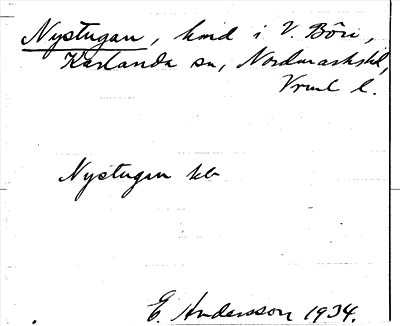 Nystugan, hmd i V. Böri,
Karlanda sn, Nordmarks hd,
Vrml l.
Nystugan kb
E. Andersson 1934.